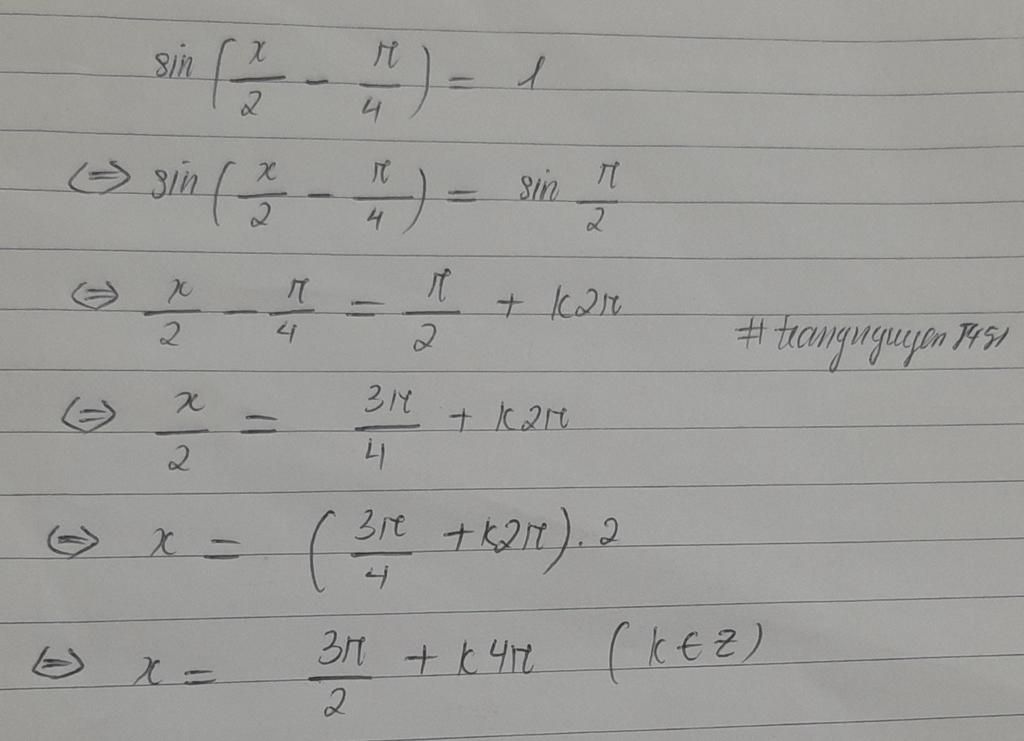 sin(x/2 - π/4) = 1
⇔ sin(x/2 - π/4) = sin π/2
⇔ x/2 - π/4 = π/2 + k2π
#trangnguyen7451
⇔ x/2 = 3π/4 + k2π
⇔ x = (3π/4 + k2π).2
⇔ x = 3π/2 + k4π (k ∈ Z)